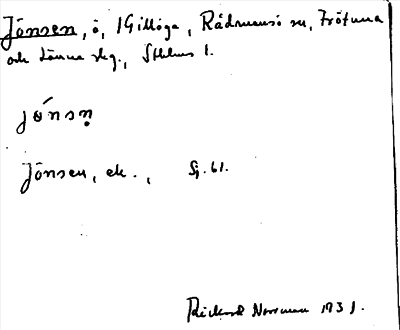 Jönsen, ö, i Gillöga, Rådmansö sn, Frötuna
och Länna skg., Sthlms l.
jǿnsṇ
Jönsen, ek., Sj. 61.
Rickard Norrman 193